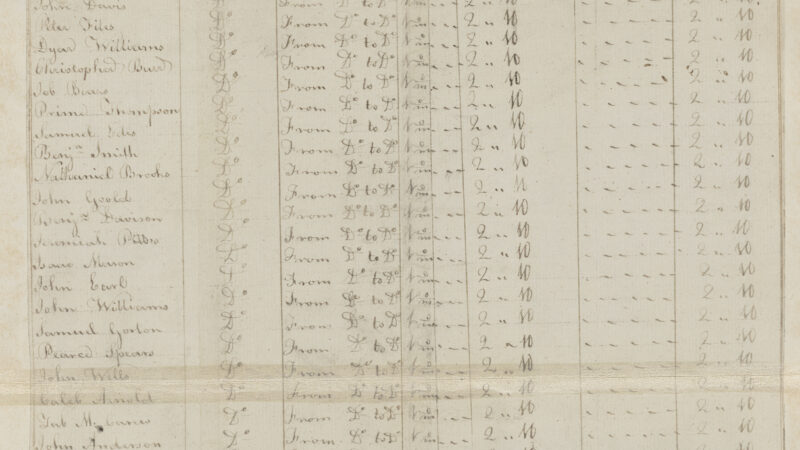 John Davis From Do to Do 2 " 10 2 " 10
Files Do From Do to Do 2 " 10 2 " 10
Dyer Williams Do From Do to Do 2 " 10 2 " 10
Christopher Do From Do to Do 2 " 10 2 " 10
Job Do From Do to Do 2 " 10 2 " 10
Prime Thompson Do From Do to Do 2 " 10 2 " 10
Samuel Do From Do to Do 2 " 10 2 " 10
Benjn Smith Do From Do to Do 2 " 10 2 " 10
Nathaniel Brooks Do From Do to Do 2 " 10 2 " 10
John Goold Do From Do to Do 2 " 10 2 " 10
Benjn Davison Do From Do to Do 2 " 10 2 " 10
Jeremiah Do From Do to Do 2 " 10 2 " 10
Isaac Mason Do From Do to Do 2 " 10 2 " 10
John Earl Do From Do to Do 2 " 10 2 " 10
John Williams Do From Do to Do 2 " 10 2 " 10
Samuel Gorton Do From Do to Do 2 " 10 2 " 10
Pearce Spears Do From Do to Do 2 " 10 2 " 10
John Wills Do From Do to Do 2 " 10 2 " 10
Caleb Arnold Do From Do to Do 2 " 10 2 " 10
Do From Do to Do 2 " 10 2 " 10
John Anderson Do From Do to Do 2 " 10 2 " 10